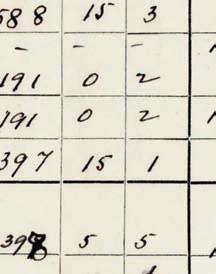 588 15 3
- - -
191 0 2
191 0 2
397 15 1
5 5